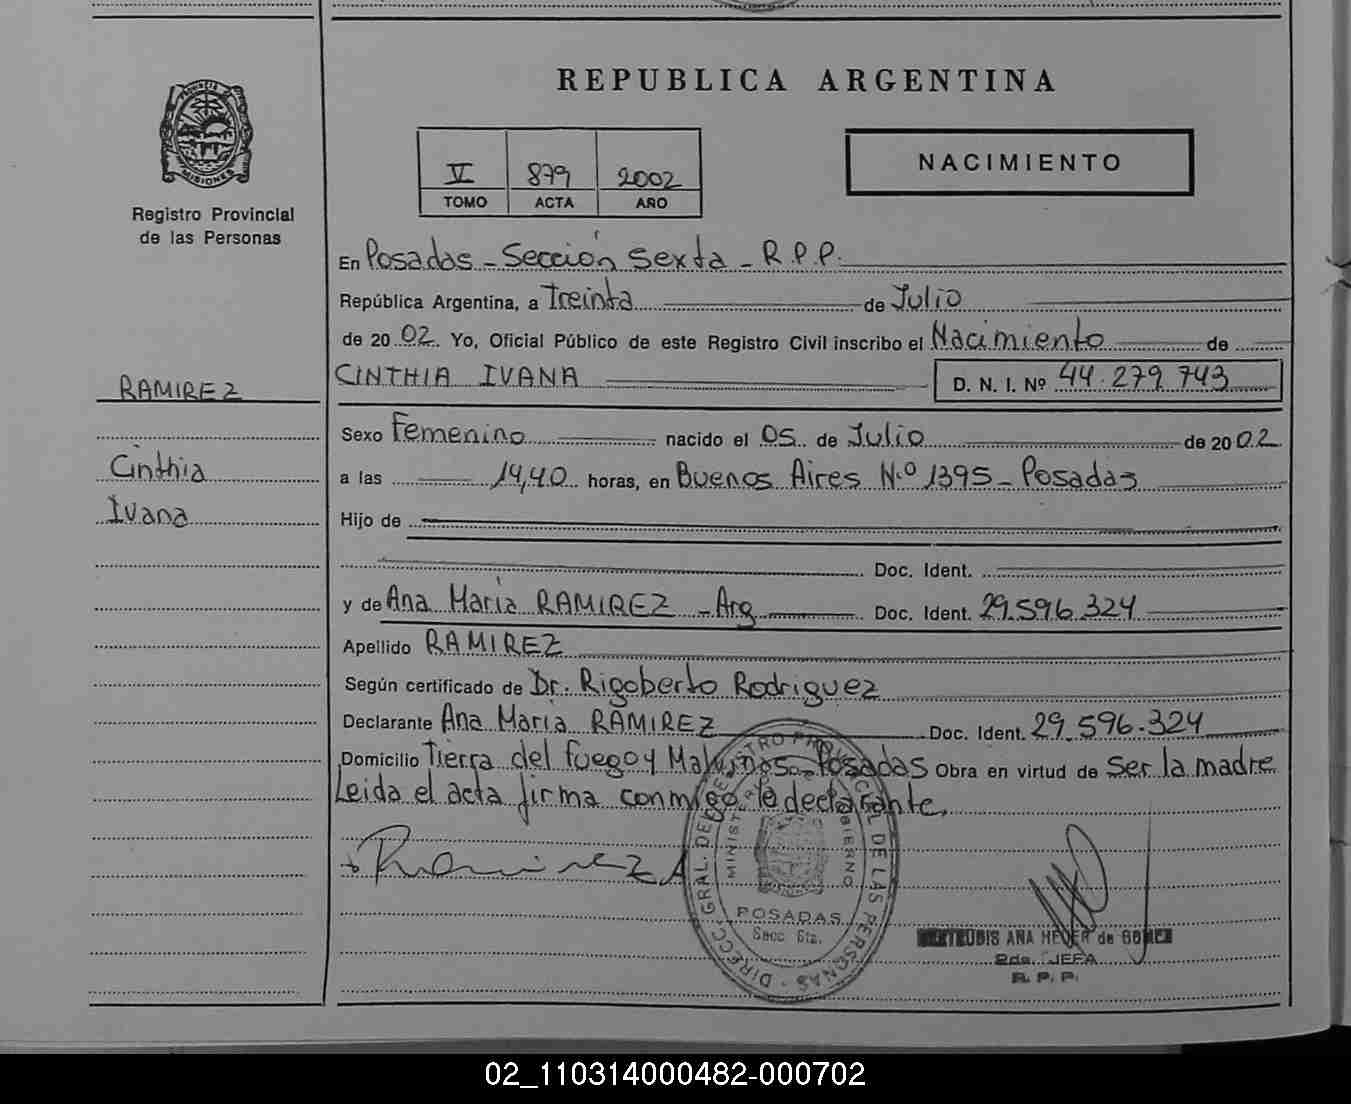 REPUBLICA ARGENTINA
PROVINCIA DE
MISIONES
Registro Provincial
de las Personas
V 879 2002
TOMO ACTA AÑO
NACIMIENTO
En Posadas - Sección Sexta - R.P.P.
República Argentina, a Treinta de Julio
de 2002. Yo, Oficial Público de este Registro Civil inscribo el Nacimiento de
CINTHIA IVANA D. N. I. Nº 44.279.743
RAMIREZ
Cinthia
Ivana
Sexo Femenino nacido el 05 de Julio de 2002
a las 14,40 horas, en Buenos Aires N.º 1395 - Posadas
Hijo de
Doc. Ident.
y de Ana María RAMIREZ - Arg Doc. Ident. 29.596.324
Apellido RAMIREZ
Según certificado de Dr. Rigoberto Rodriguez
Declarante Ana María RAMIREZ Doc. Ident. 29.596.324
Domicilio Tierra del fuego y Malvinas - Posadas Obra en virtud de Ser la madre
Leida el acta firma conmigo la declarante.
Ramirez A
DIRECC. GRAL. DEL REGISTRO PROVINCIAL DE LAS PERSONAS
MINISTERIO GOBIERNO
POSADAS
Secc. 6ta.
ANA de
2da. JEFA
R. P. P.
02_110314000482-000702